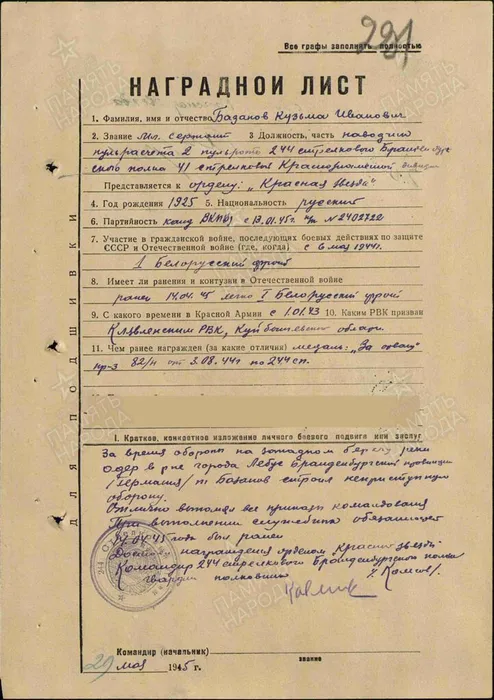 291
Все графы заполнять полностью
НАГРАДНОЙ ЛИСТ
1. Фамилия, имя и отчество Базанов Кузьма Иванович
2. Звание мл. сержант 3 Должность, часть наводчик
пульрасчета 2 пульроты 244 стрелкового Бранденбург
ского полка 41 стрелковой Краснознаменной дивизии
Представляется к ордену: „Красная звезда"
4. Год рождения 1925 5. Национальность русский
6. Партийность канд ВКП(б) с 13.01.45г. № 2402722
7. Участие в гражданской войне, последующих боевых действиях по защите
СССР и Отечественной войне (где, когда) с 6 мая 1944г.
1 Белорусский фронт
8. Имеет ли ранения и контузии в Отечественной войне
ранен 14.04.45 легко I Белорусский фронт
9. С какого времени в Красной Армии с 1.01.43 10. Каким РВК призван
Клявлинским РВК, Куйбышевской области
11. Чем ранее награжден (за какие отличия) медаль: „За отвагу"
пр-з 82/н от 3.08.44г по 244 сп.
ДЛЯ ПОДШИВКИ
I. Краткое, конкретное изложение личного боевого подвига или заслуг
За время обороны на западном берегу реки
Одер в р-не города Лебус Бранденбургской провинции
/Германия/ т. Базанов строил неприступную
оборону.
Отлично выполнял все приказы командования
При выполнении служебных обязанностей
14.04.45 года был ранен
Достоин награждения орденом Красная звезда
Командир 244 стрелкового Бранденбургского полка
гвардии полковник
244
Командир (начальник)
звание
29 мая 1945 г.
ПАМЯТЬ НАРОДА